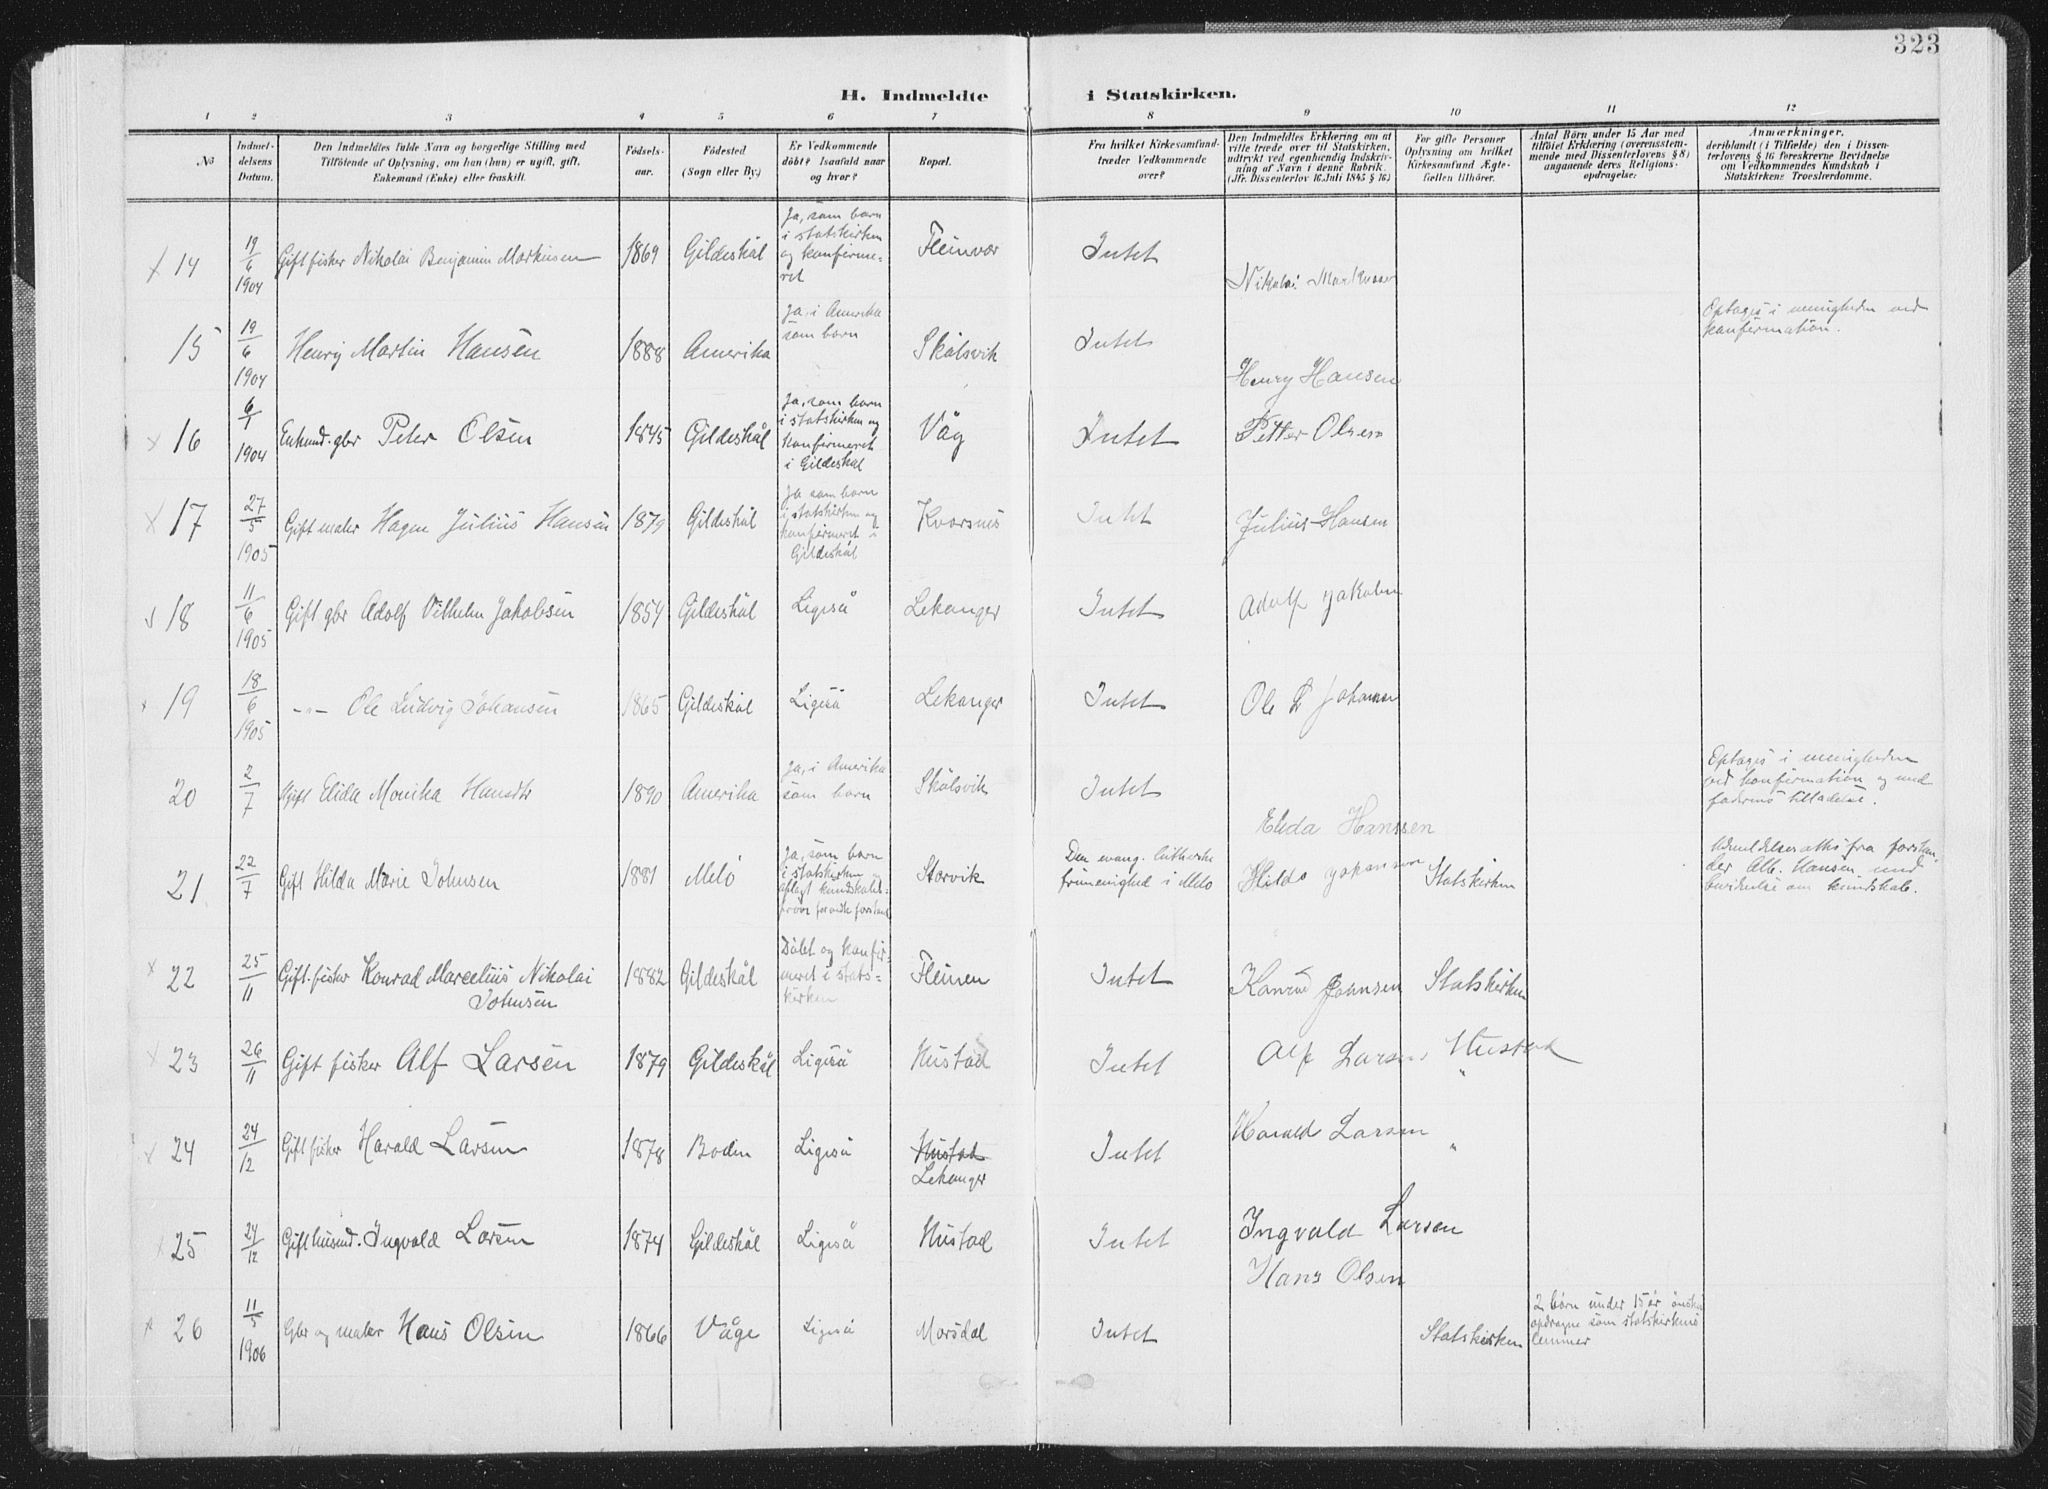 323
H. Indmeldte i Statskirken.
1 2 3 4 5 6 7 8 9 10 11 12
No
Indmel-
delsens
Datum.
Den Indmeldtes fulde Navn og borgerlige Stilling med
Tilföiende af Oplysning, om han (hun) er ugift, gift.
Enkemand (Enke) eller fraskilt.
Födsels-
aar.
Födested
(Sogn eller By.)
Er Vedkommende
döbt? Isaafald naar
og hvor?
Bopæl.
Fra hvilket Kirkesamfund-
træder Vedkommende
over?
Den Indmeldtes Erklæring om at
ville træde over til Statskirken,
udtrykt ved egenhændig Indskriv-
ning af Navn i denne Rubrik.
(Jfr. Dissenterlov 16. Juli 1845 § 16)
For gifte Personer
Oplysning om hvilket
Kirkesamfund Ægte-
fællen tilhörer.
Antal Börn under 15 Aar med
tilföiet Erklæring (overensstem-
mende med Dissenterlovens § 8)
angaaende deres Religions-
opdragelse.
Anmærkninger,
deriblandt (i Tilfælde) den i Dissen-
terlovens § 16 foreskrevne Bevidnelse
om Vedkommendes Kundskab i
Statskirkens Troeslærdomme.
14 19/6 1904 Gift fisker Nikolai Benjamin Markusen 1869 Gildeskål Ja, som barn
i statskirken
og konfirme-
ret
Fleinvær Intet Nikolai Markussen
15 19/6 1904 Henry Martin Hansen 1888 Amerika Ja, i Amerika
som barn
Skålsvik Intet Henry Hansen
Optages i menigheden ved
konfirmation.
16 6/1 1904 Enkemd. gbr Peter Olsen 1845 Gildeskål Ja, som barn
i statskirken og
konfirmeret
i Gildeskål
Våg Intet Petter Olsen
17 27/5 1905 Gift maler Hagen Julius Hansen 1879 Gildeskål Ja som barn
i statskirken og
konfirmeret i
Gildeskål
Kvarsnes Intet Julius Hansen
18 11/6 1905 Gift gbr Adolf Vilhelm Jakobsen 1854 Gildeskål Ligeså Lekanger Intet Adolf Jakobsen
19 18/6 1905 -"- Ole Ludvig Johansen 1865 Gildeskål Ligeså Lekanger Intet Ole L Johansen
20 2/7 Ugift Elida Monika Hansdtr 1890 Amerika Ja, i Amerika
som barn
Skålsvik Intet Elida Hanssen
Optages i menigheden
ved konfirmation og med
faderens tilladelse.
21 22/7 Gift Hilda Marie Johnsen 1881 Melö Ja, som barn
i statskirken og
aflagt kundskabs-
pröve for vedk. forstand.
Storvik Den evang. lutherske
frimenighed i Melö
Hilda Johansen Statskirken
Udmeldelsesattest fra forstan-
der Alb. Hansen med
bevidnelse om kundskab.
22 25/11 Gift fisker Konrad Marcelius Nikolai
Johnsen
1882 Gildeskål Döbt og konfir-
meret i stats-
kirken
Fleinen Intet Konrad Johnsen Statskirken
23 26/11 Gift fisker Alf Larsen 1879 Gildeskål Ligeså Hustad Intet Alf Larsen Hustad
"
24 24/12 Gift fisker Harald Larsen 1878 Bodin Ligeså Hustad
Lekanger
Intet Harald Larsen "
25 24/12 Gift husmd. Ingvald Larsen 1874 Gildeskål Ligeså Hustad Intet Ingvald Larsen
26 11/5 1906 Gbr og maler Hans Olsen 1866 Våge Ligeså Morsdal Intet Hans Olsen Statskirken
2 börn under 15 år önskes
opdragne som statskirkens
lemmer